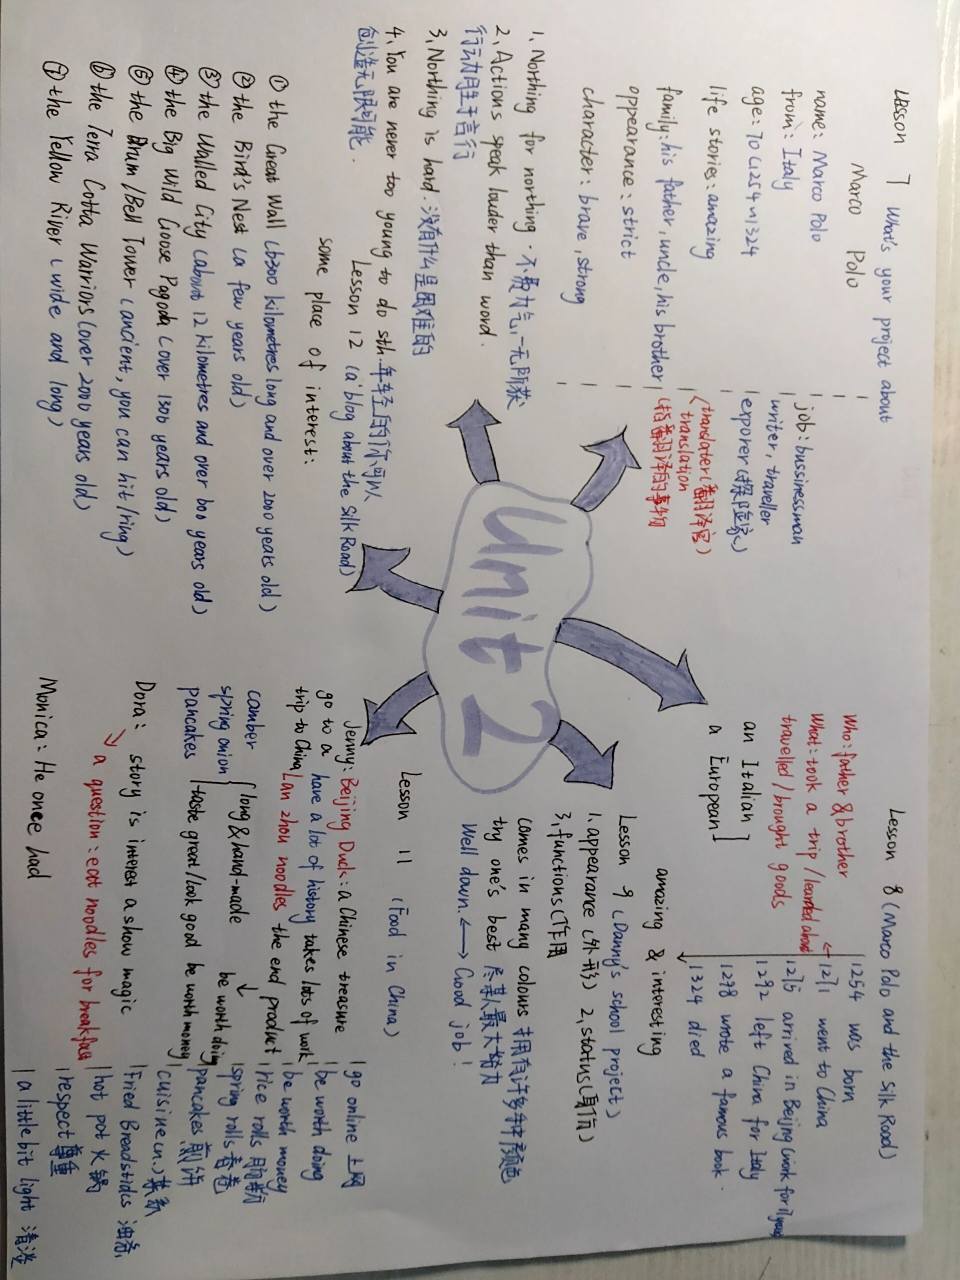 Lesson 7 What's your project about
Marco Polo
name: Marco Polo
from: Italy
age: 70 (1254~1324
life stories: amazing
family: his father, uncle, his brother
appearance: strict
character: brave, strong
job: bussinessman
writer, traveller
exporer (探险家)
translater (翻译官)
translation
(指翻译的事物
1. Northing for northing. 不费力气,一无所获
2. Actions speak louder than word.
行动胜于言行
3. Northing is hard. 没有什么是困难的
4. You are never too young to do sth. 年轻的你可以
创造无限可能.
Unit 2
Lesson 8 (Marco Polo and the Silk Road)
Who: father & brother
What: took a trip / learded about
travelled / brought goods
an Italian
a European
1254 was born
1271 went to China
1275 arrived in Beijing (work for 17 years
1292 left China for Italy
1278 wrote a famous book.
1324 died
amazing & interesting
Lesson 9 (Danny's school project)
1. appearance (外形) 2. status (身份)
3. functions (作用
comes in many colours 拥有许多种颜色
thy one's best 尽某人最大努力
Well down. ↔ Good job!
Lesson 12 (a blog about the Silk Road)
some place of interest:
① the Great Wall (6300 kilometres long and over 2000 years old)
② the Bird's Nest (a few years old)
③ the Walled City (about 12 kilometres and over 600 years old)
④ the Big Wild Goose Pagoda (over 1300 years old)
⑤ the Drum/Bell Tower (ancient, you can hit/ring)
⑥ the Terra Cotta Warriors (over 2000 years old)
⑦ the Yellow River (wide and long)
Lesson 11 (Food in China)
Jenny: Beijing Duck: a Chinese treasure
go to a have a lot of history takes lots of work
trip to China Lan zhou noodles the end product
camber long & hand-made be worth doing
spring onion taste great/look good be worth money
pancakes
Dora: story is interest a show magic
a question: eat noodles for breakfast
Monica: He once had
go online 上网
be worth doing
be worth money
rice rolls 肠粉
spring rolls 春卷
pancakes 煎饼
cuisine (n.) 菜系
Fried Breadsticks 油条
hot pot 火锅
respect 尊重
a little bit light 清淡